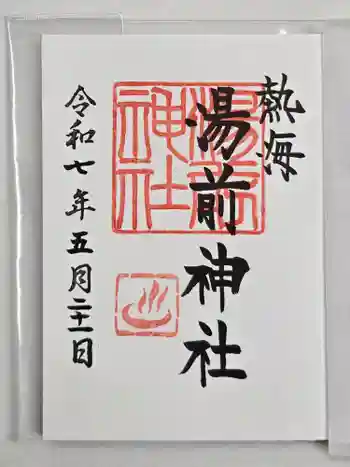 熱海
湯前神社
湯前神社
令和七年五月二十一日